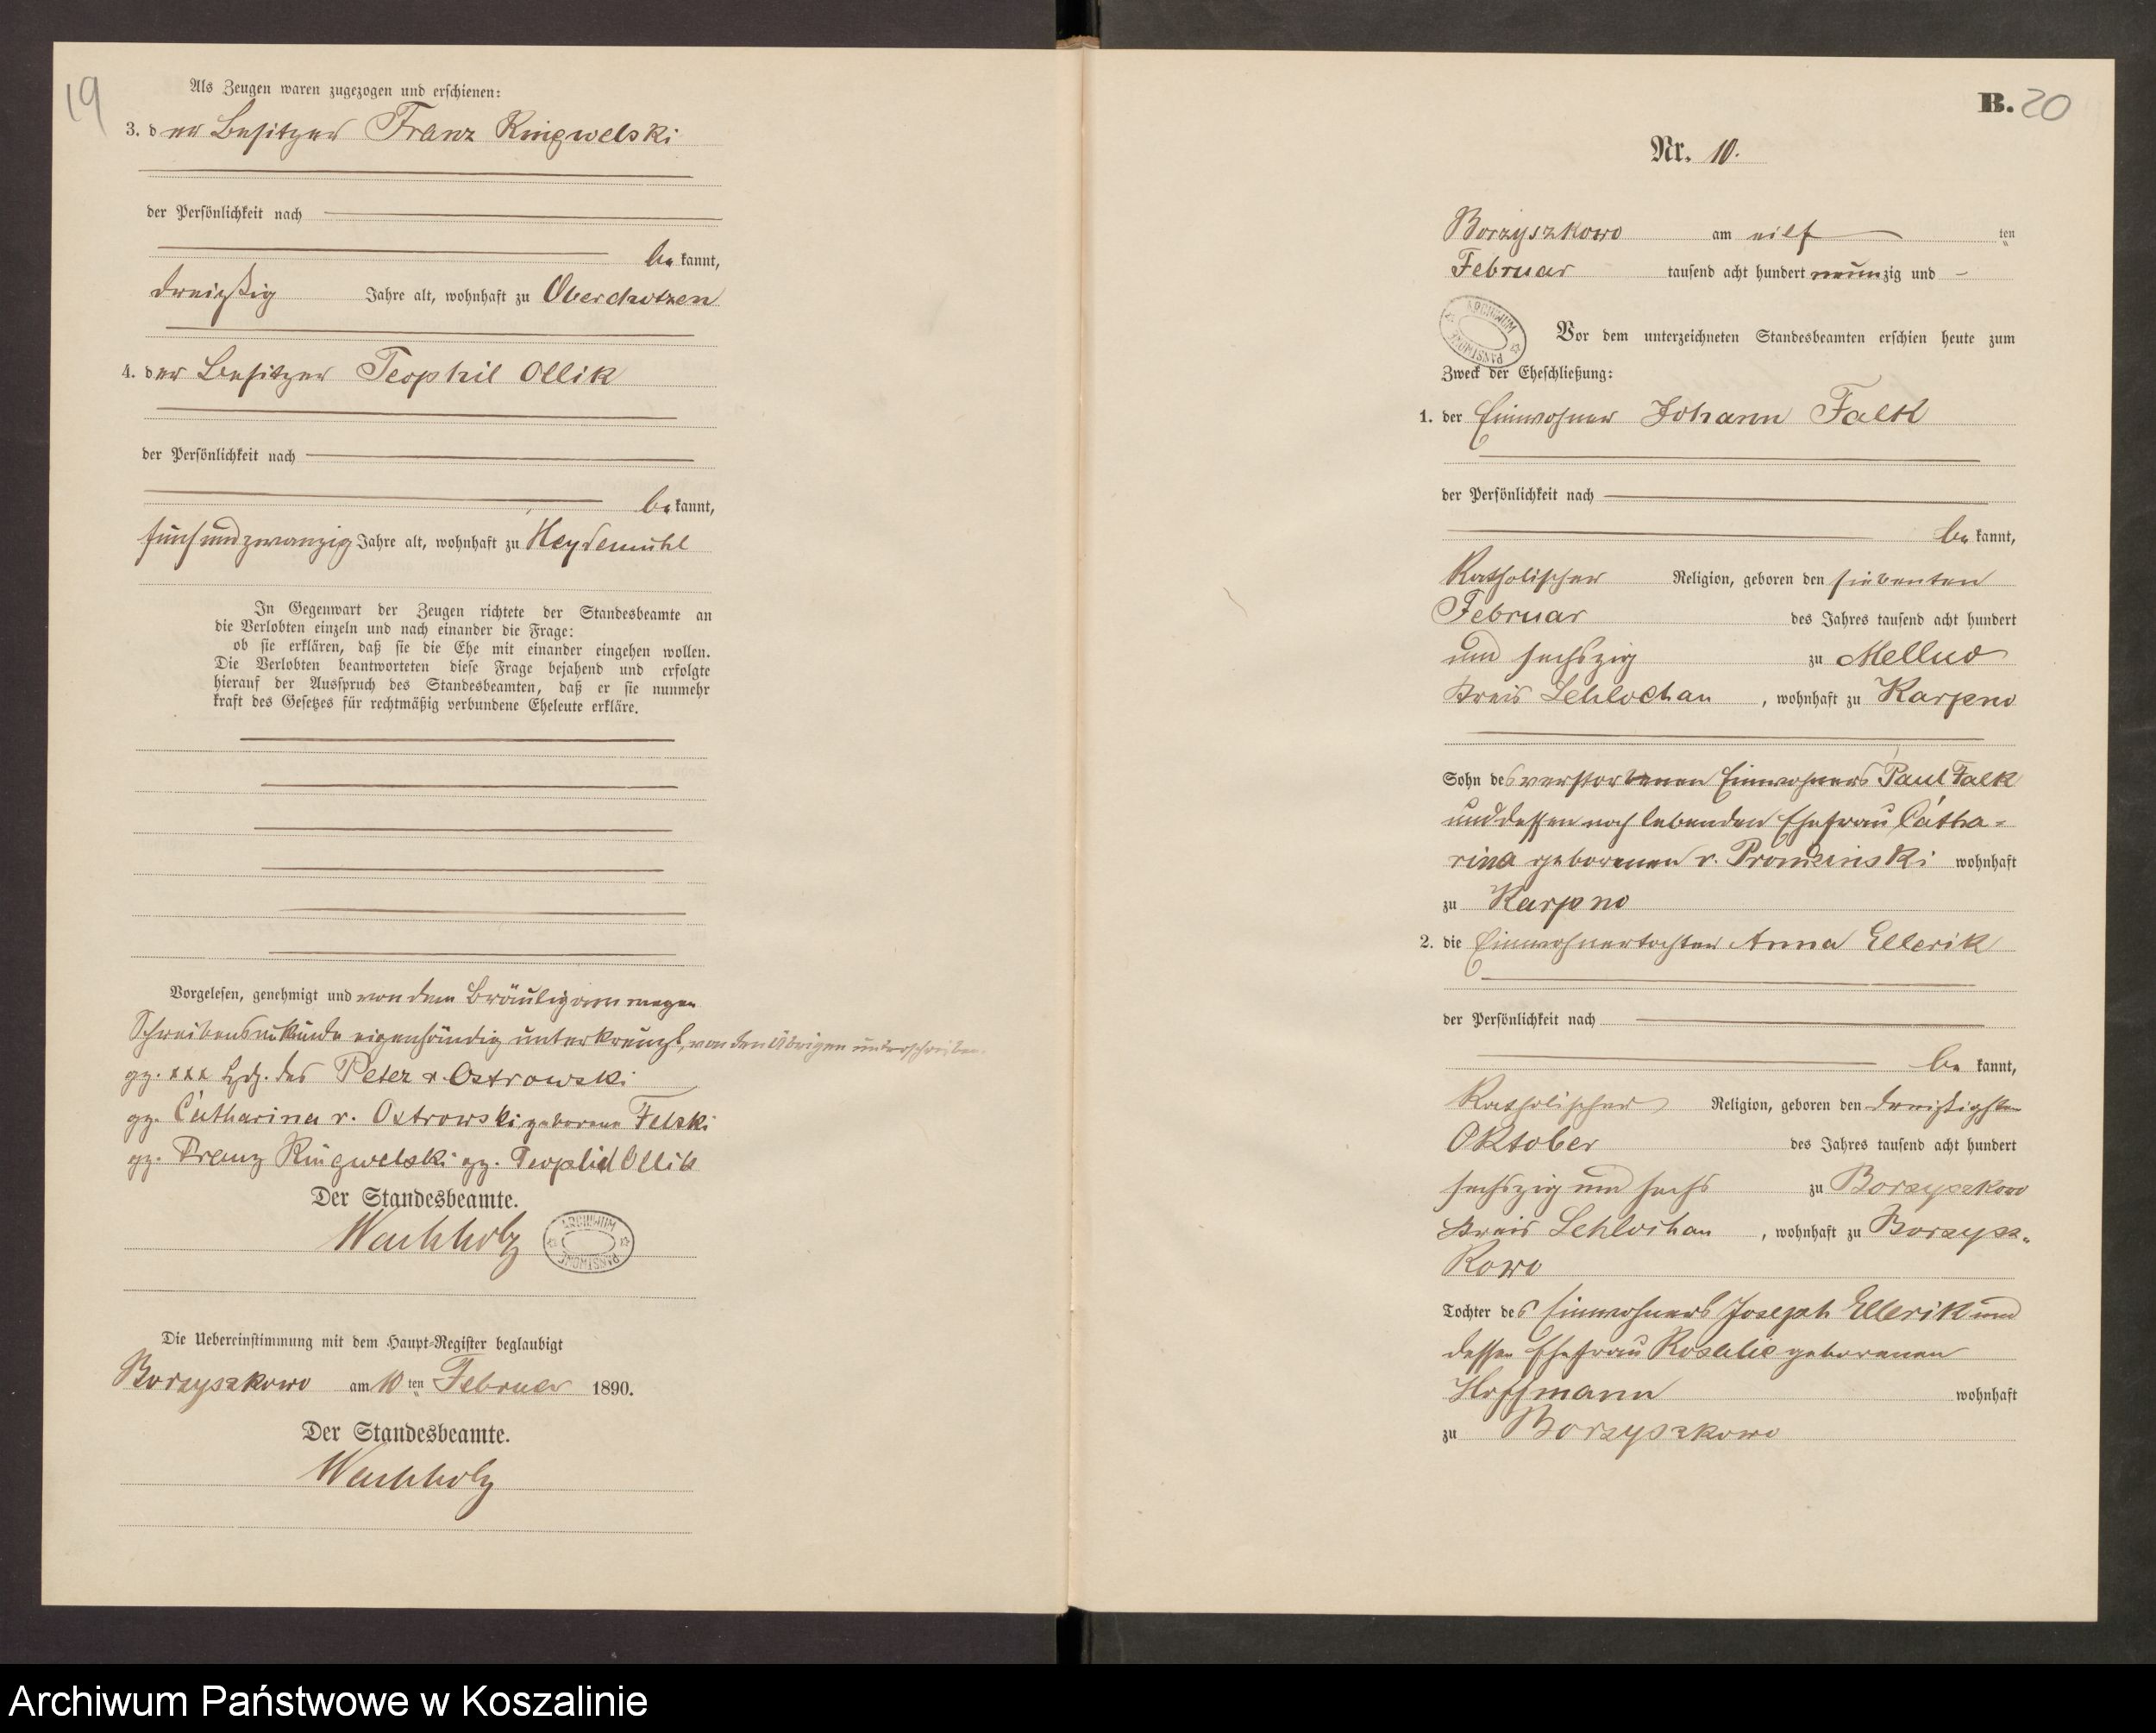 19
Als Zeugen waren zugezogen und erschienen:
3. der Besitzer Franz Ringwelski
der Persönlichkeit nach
bekannt,
dreißig Jahre alt, wohnhaft zu Oberchotzen
4. der Besitzer Teophil Ollik
der Persönlichkeit nach
bekannt,
fünfundzwanzig Jahre alt, wohnhaft zu Heydemühl
In Gegenwart der Zeugen richtete der Standesbeamte an
die Verlobten einzeln und nach einander die Frage:
ob sie erklären, daß sie die Ehe mit einander eingehen wollen.
Die Verlobten beantworteten diese Frage bejahend und erfolgte
hierauf der Ausspruch des Standesbeamten, daß er sie nunmehr
kraft des Gesetzes für rechtmäßig verbundene Eheleute erkläre.
Vorgelesen, genehmigt und von dem Bräutigam wegen
Schreibensunkunde eigenhändig unterkreuzt, von den Übrigen unterschrieben.
gz. xxx Hdz. des Peter v. Ostrowski
gz. Catharina v. Ostrowski geborene Felski
gz. Franz Ringwelski gz. Teophil Ollik
Der Standesbeamte.
Wachholz
ARCHIWUM PAŃSTWOWE
Die Uebereinstimmung mit dem Haupt-Register beglaubigt
Borzyszkowo am 10 ten Februar 1890.
Der Standesbeamte.
Wachholz
B. 20
Nr. 10.
Borzyszkowo am eilf ten
Februar tausend acht hundert neunzig und –
ARCHIWUM PAŃSTWOWE
Vor dem unterzeichneten Standesbeamten erschien heute zum
Zweck der Eheschließung:
1. der Einwohner Johann Falk
der Persönlichkeit nach
bekannt,
Katholischer Religion, geboren den siebenten
Februar des Jahres tausend acht hundert
und sechszig zu Melno
Kreis Schlochau, wohnhaft zu Karpno
Sohn des verstorbenen Einwohners Paul Falk
und dessen noch lebenden Ehefrau Catha-
rina geborenen v. wohnhaft
zu Karpno
2. die Einwohnertochter Anna Ellerik
der Persönlichkeit nach
bekannt,
Katholischer Religion, geboren den dreißigsten
Oktober des Jahres tausend acht hundert
sechszig und sechs zu Borzyszkowo
Kreis Schlochau, wohnhaft zu Borzysz-
kowo
Tochter des Einwohners Joseph Ellerik und
dessen Ehefrau Rosalie geborenen
Hoffmann wohnhaft
zu Borzyszkowo
Archiwum Państwowe w Koszalinie